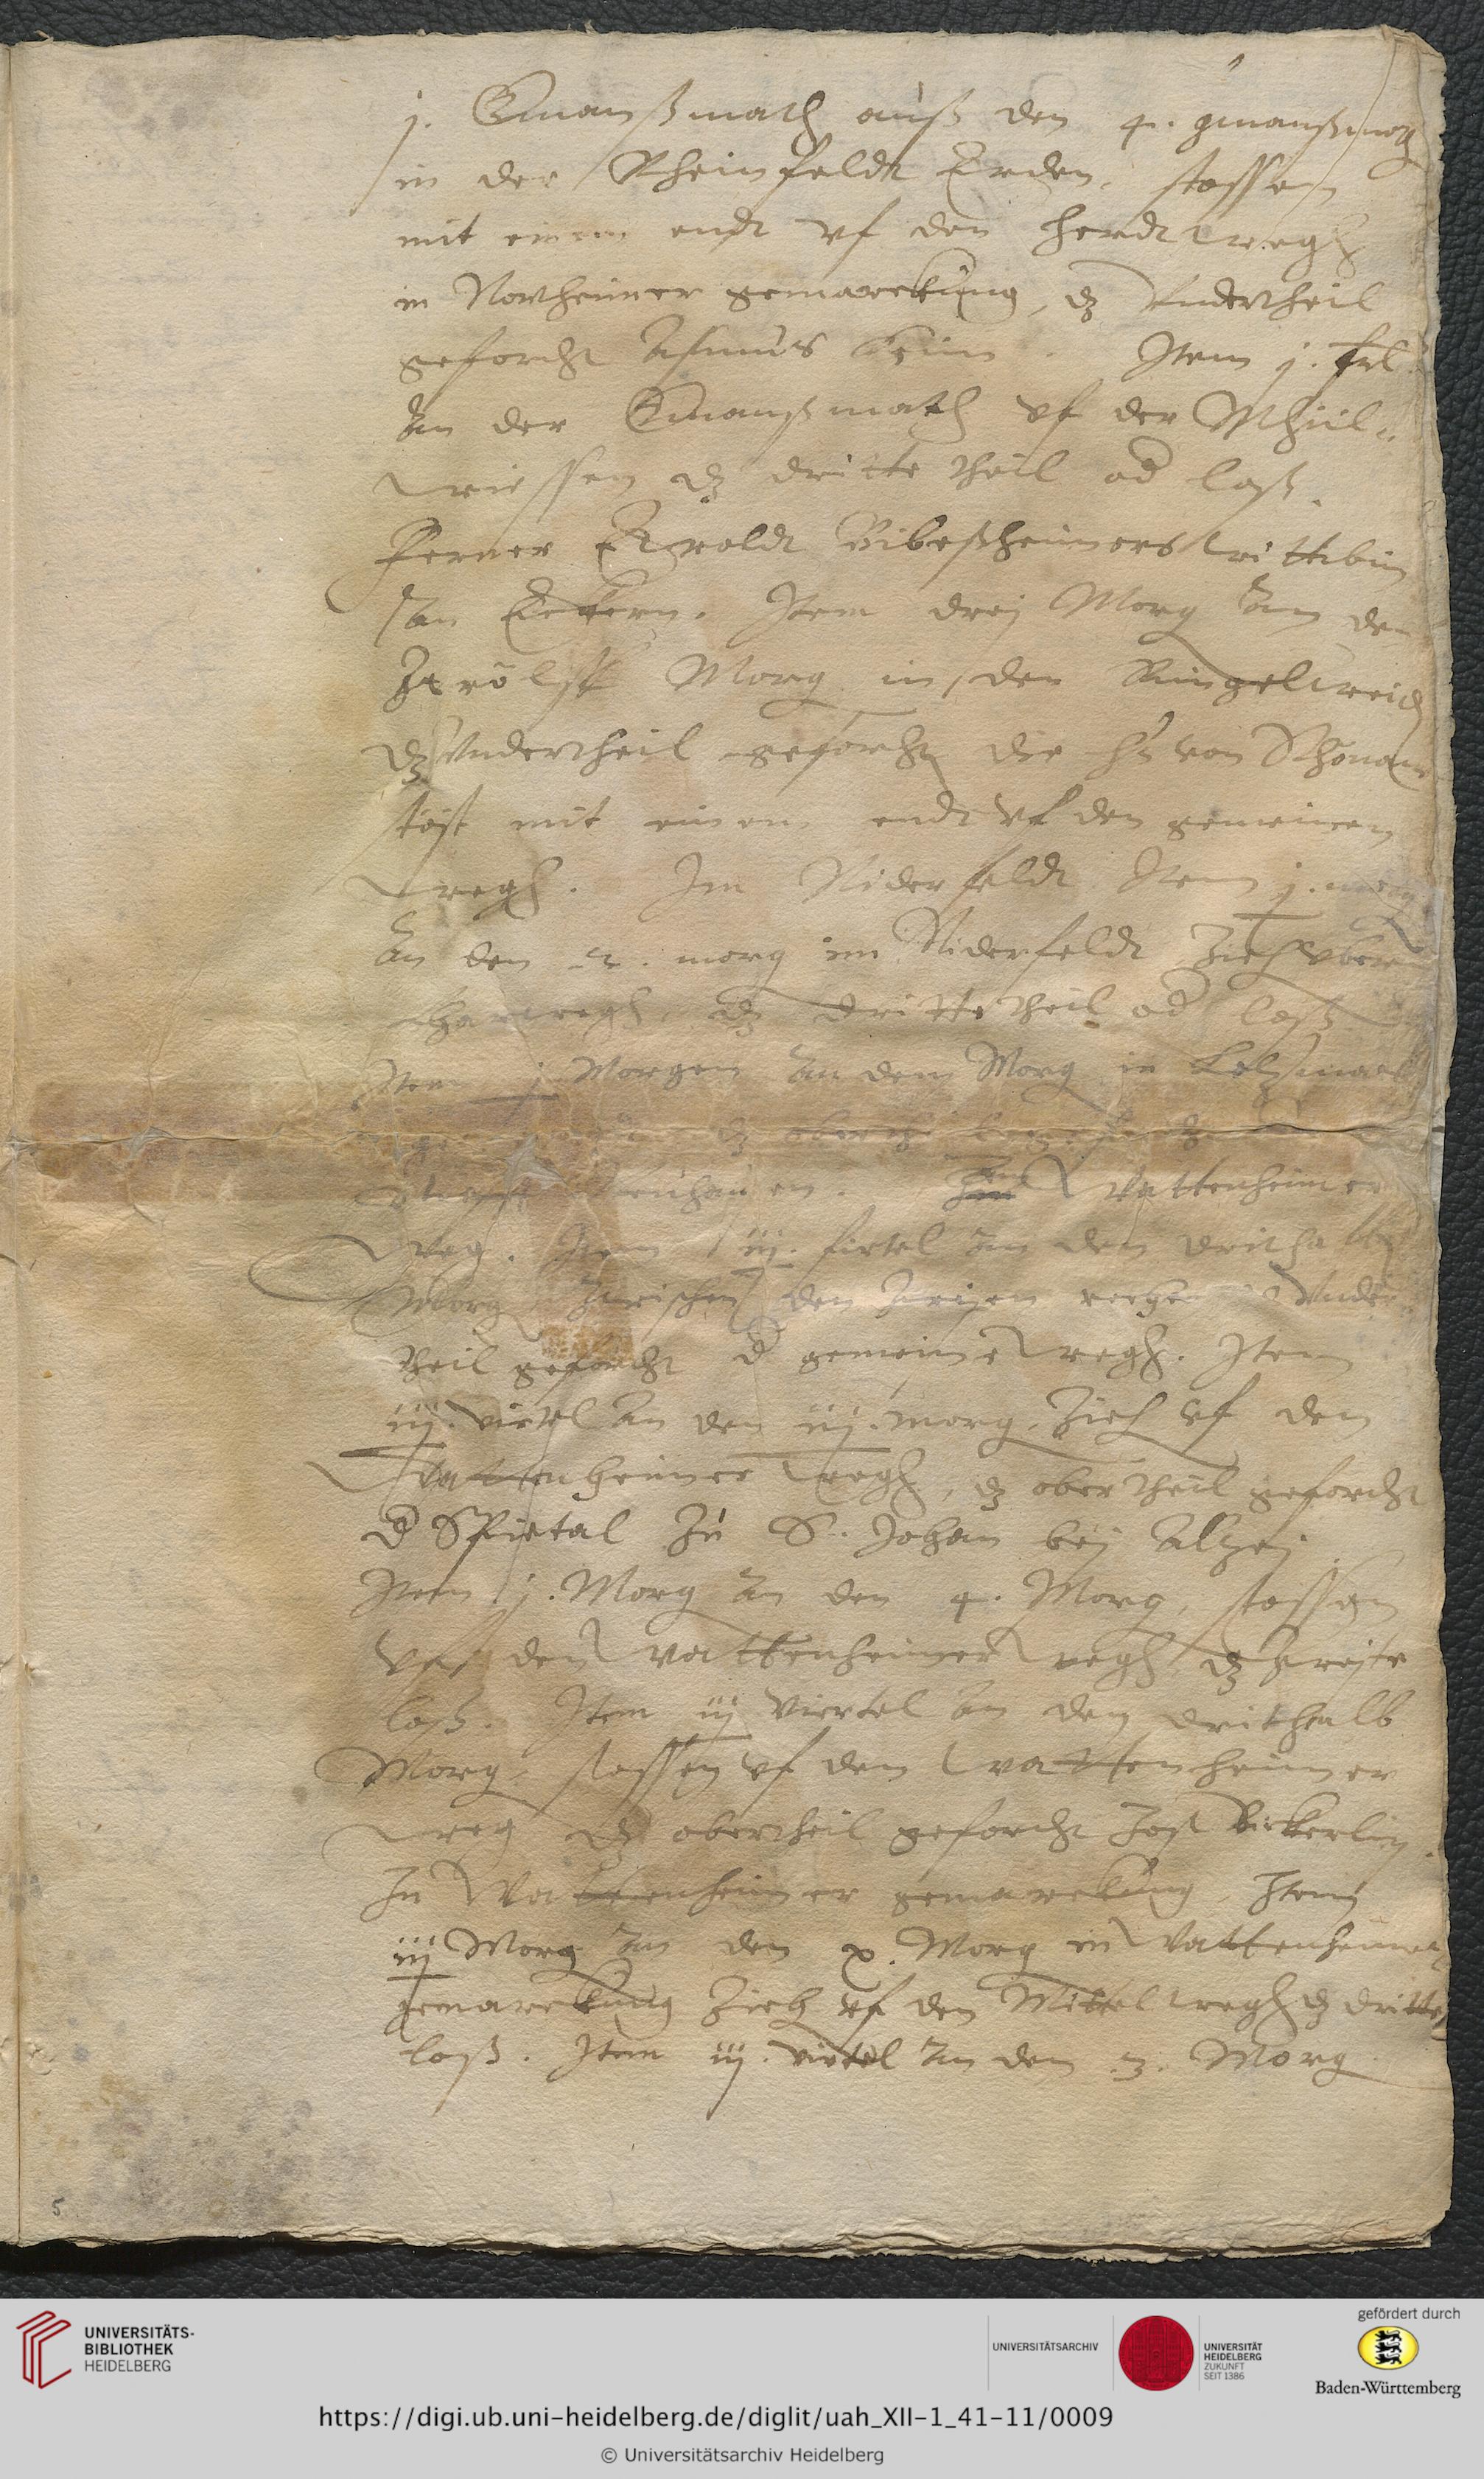 j. Gmanßmath auß den 4. gmanßmath
in der Rheinfeldt Erden, stossen
mit einem endt vf den herdt wegh
in Northeimer gemarckung, dz Vndertheil
geforcht Asmus Item j. frl.
An der Gmanßmath vf der Mhül-
wiessen dz dritte theil od loß.
Ferner Bibeßheimers wittibin
An Eckern. Item drej Morg an den
Zwölff Morg in den Ringelweid
dz Vndertheil geforcht die von Schonaw
stost mit einem endt vf den gemeinen
wegh. Im Niderfeldt Item j. morg
An den 2. morg im Niderfeldt, Zieh vber
wegh, dz dritte theil od loß
Item j Morgen An den Morg in
dz
. Im Wattenheimer
Weg. Item iij. firtel An den drithalb
Morg Zwischen den Zweien wegen Vnder
theil geforcht d gemeine wegh. Item
iij. virtel An den iij. morg, Zieh vf den
Wattenheimer wegh, dz obertheil geforcht
d Spietal Zu S. Johan bej Altzej.
Item j. Morg An den 4. Morg, stossen
vff den Wattenheimer wegh, dz Zweite
loß. Item iij Viertel An den drithalb
Morg, stossen vf den Wattenheimer
weg dz obertheil geforcht Jost
In Wattenheimer gemarckung, Item
iij Morg An den x. Morg in Wattenheimer
gemarckung Zieh vf den Mittel wegh dz dritte
loß. Item iij. virtel An den 3. Morg
5
UNIVERSITÄTS-
BIBLIOTHEK
HEIDELBERG
UNIVERSITÄTSARCHIV
UNIVERSITÄT
HEIDELBERG
ZUKUNFT
SEIT 1386
gefördert durch
Baden-Württemberg
https://digi.ub.uni-heidelberg.de/diglit/uah_XII-1_41-11/0009
© Universitätsarchiv Heidelberg